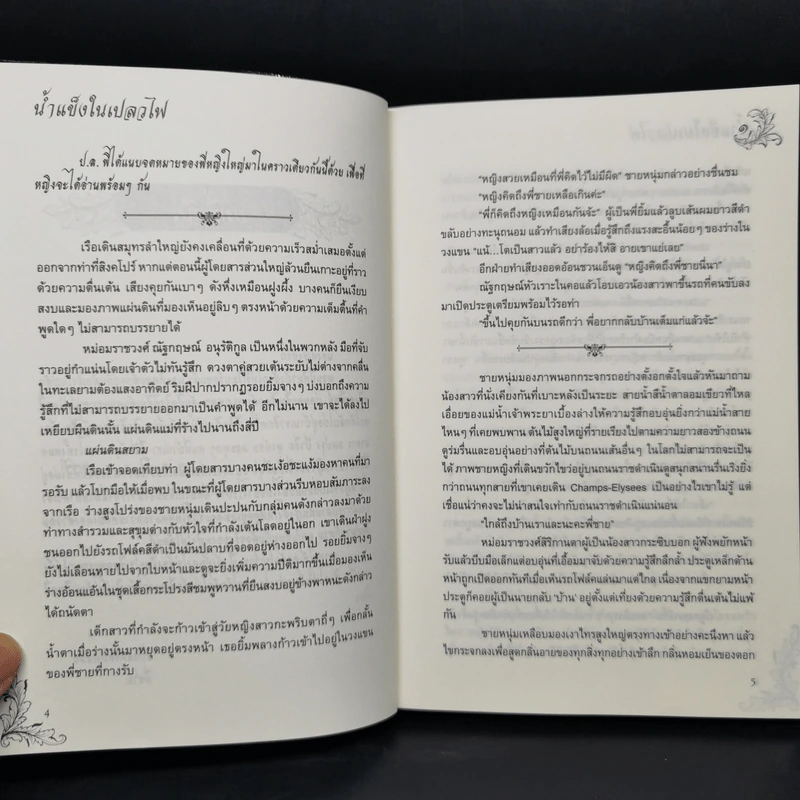 น้ำแข็งในเปลวไฟ
ป.ล. พี่ได้แนบจดหมายของพี่หญิงใหญ่มาในคราวเดียวกันนี้ด้วย เพื่อที่
หญิงจะได้อ่านพร้อมๆ กัน
เรือเดินสมุทรลำใหญ่ยังคงเคลื่อนที่ด้วยความเร็วสม่ำเสมอตั้งแต่
ออกจากท่าที่สิงคโปร์ หากแต่ตอนนี้ผู้โดยสารส่วนใหญ่ล้วนยืนเกาะอยู่ที่ราว
ด้วยความตื่นเต้น เสียงคุยกันเบาๆ ดังหึ่งเหมือนฝูงผึ้ง บางคนก็ยืนเงียบ
สงบและมองภาพแผ่นดินที่มองเห็นอยู่ลิบๆ ตรงหน้าด้วยความเต็มตื้นที่คำ
พูดใดๆ ไม่สามารถบรรยายได้
หม่อมราชวงศ์ ณัฐกฤษณ์ อนุรัติกูล เป็นหนึ่งในพวกหลัง มือที่จับ
ราวอยู่กำแน่นโดยเจ้าตัวไม่ทันรู้สึก ดวงตาคู่สวยเต้นระยับไม่ต่างจากคลื่น
ในทะเลยามต้องแสงอาทิตย์ ริมฝีปากปรากฏรอยยิ้มจางๆ บ่งบอกถึงความ
รู้สึกที่ไม่สามารถบรรยายออกมาเป็นคำพูดได้ อีกไม่นาน เขาจะได้ลงไป
เหยียบผืนดินนั้น แผ่นดินแม่ที่ร้างไปนานถึงสี่ปี
แผ่นดินสยาม
เรือเข้าจอดเทียบท่า ผู้โดยสารบางคนชะเง้อชะแง้มองหาคนที่มา
รอรับ แล้วโบกมือให้เมื่อพบ ในขณะที่ผู้โดยสารบางส่วนรีบหอบสัมภาระลง
จากเรือ ร่างสูงโปร่งของชายหนุ่มเดินปะปนกับกลุ่มคนดังกล่าวลงมาด้วย
ท่าทางสำรวมและสุขุมต่างกับหัวใจที่กำลังเต้นโลดอยู่ในอก เขาเดินฝ่าฝูง
ชนออกไปยังรถโฟล์คสีดำเป็นมันปลาบที่จอดอยู่ห่างออกไป รอยยิ้มจางๆ
ยังไม่เลือนหายไปจากใบหน้าและดูจะยิ่งเพิ่มความปีติมากขึ้นเมื่อมองเห็น
ร่างอ้อนแอ้นในชุดเสื้อกระโปรงสีชมพูหวานที่ยืนสงบอยู่ข้างพาหนะดังกล่าว
ได้ถนัดตา
เด็กสาวที่กำลังจะก้าวเข้าสู่วัยหญิงสาวกะพริบตาถี่ๆ เพื่อกลั้น
น้ำตาเมื่อร่างนั้นมาหยุดอยู่ตรงหน้า เธอยิ้มพลางก้าวเข้าไปอยู่ในวงแขน
ของพี่ชายที่กางรับ
4
“หญิงสวยเหมือนที่พี่คิดไว้ไม่มีผิด” ชายหนุ่มกล่าวอย่างชื่นชม
“หญิงคิดถึงพี่ชายเหลือเกินค่ะ”
“พี่ก็คิดถึงหญิงเหมือนกันจ้ะ” ผู้เป็นพี่ยิ้มแล้วลูบเส้นผมยาวสีดำ
ขลับอย่างทะนุถนอม แล้วทำเสียงล้อเมื่อรู้สึกถึงแรงสะอื้นน้อยๆ ของร่างใน
วงแขน “แน้...โตเป็นสาวแล้ว อย่าร้องไห้สิ อายเขาแย่เลย”
อีกฝ่ายทำเสียงออดอ้อนชวนเอ็นดู “หญิงคิดถึงพี่ชายนี่นา”
ณัฐกฤษณ์หัวเราะในคอแล้วโอบเอวน้องสาวพาขึ้นรถที่คนขับลง
มาเปิดประตูเตรียมพร้อมไว้รอท่า
“ขึ้นไปคุยกันบนรถดีกว่า พี่อยากกลับบ้านเต็มแก่แล้วจ้ะ”
ชายหนุ่มมองภาพนอกกระจกรถอย่างตั้งอกตั้งใจแล้วหันมาถาม
น้องสาวที่นั่งเคียงกันที่เบาะหลังเป็นระยะ สายน้ำสีน้ำตาลอมเขียวที่ไหล
เอื่อยของแม่น้ำเจ้าพระยาเบื้องล่างให้ความรู้สึกอบอุ่นยิ่งกว่าแม่น้ำสาย
ไหนๆ ที่เคยพบพาน ต้นไม้สูงใหญ่ที่รายเรียงไปตามความยาวสองข้างถนน
ดูร่มรื่นและอบอุ่นอย่างที่ต้นไม้บนถนนเส้นอื่นๆ ในโลกไม่สามารถจะเป็น
ได้ ภาพชายหญิงที่เดินขวักไขว่อยู่บนถนนราชดำเนินดูสนุกสนานรื่นเริงยิ่ง
กว่าถนนทุกสายที่เขาเคยเดิน Champs-Elysees เป็นอย่างไรเขาไม่รู้ แต่
เชื่อแน่ว่าคงจะไม่น่าสนใจเท่ากับถนนราชดำเนินแน่นอน
“ใกล้ถึงบ้านเราแล้วนะคะพี่ชาย”
หม่อมราชวงศ์สิริกานดาผู้เป็นน้องสาวกระซิบบอก ผู้ฟังพยักหน้า
รับแล้วบีบมือเล็กแต่อบอุ่นที่เอื้อมมาจับด้วยความรู้สึกลึกล้ำ ประตูเหล็กด้าน
หน้าถูกเปิดออกทันทีเมื่อเห็นรถโฟล์คแล่นมาแต่ไกล เนื่องจากแขกยามหน้า
ประตูก็คอยผู้เป็นนายกลับ ‘บ้าน’ อยู่ตั้งแต่เที่ยงด้วยความรู้สึกตื่นเต้นไม่แพ้
กัน
ชายหนุ่มเหลือบมองเงาไทรสูงใหญ่ตรงทางเข้าอย่างคะนึงหา แล้ว
ไขกระจกลงเพื่อสูดกลิ่นอายของทุกสิ่งทุกอย่างเข้าลึก กลิ่นหอมเย็นของดอก
5